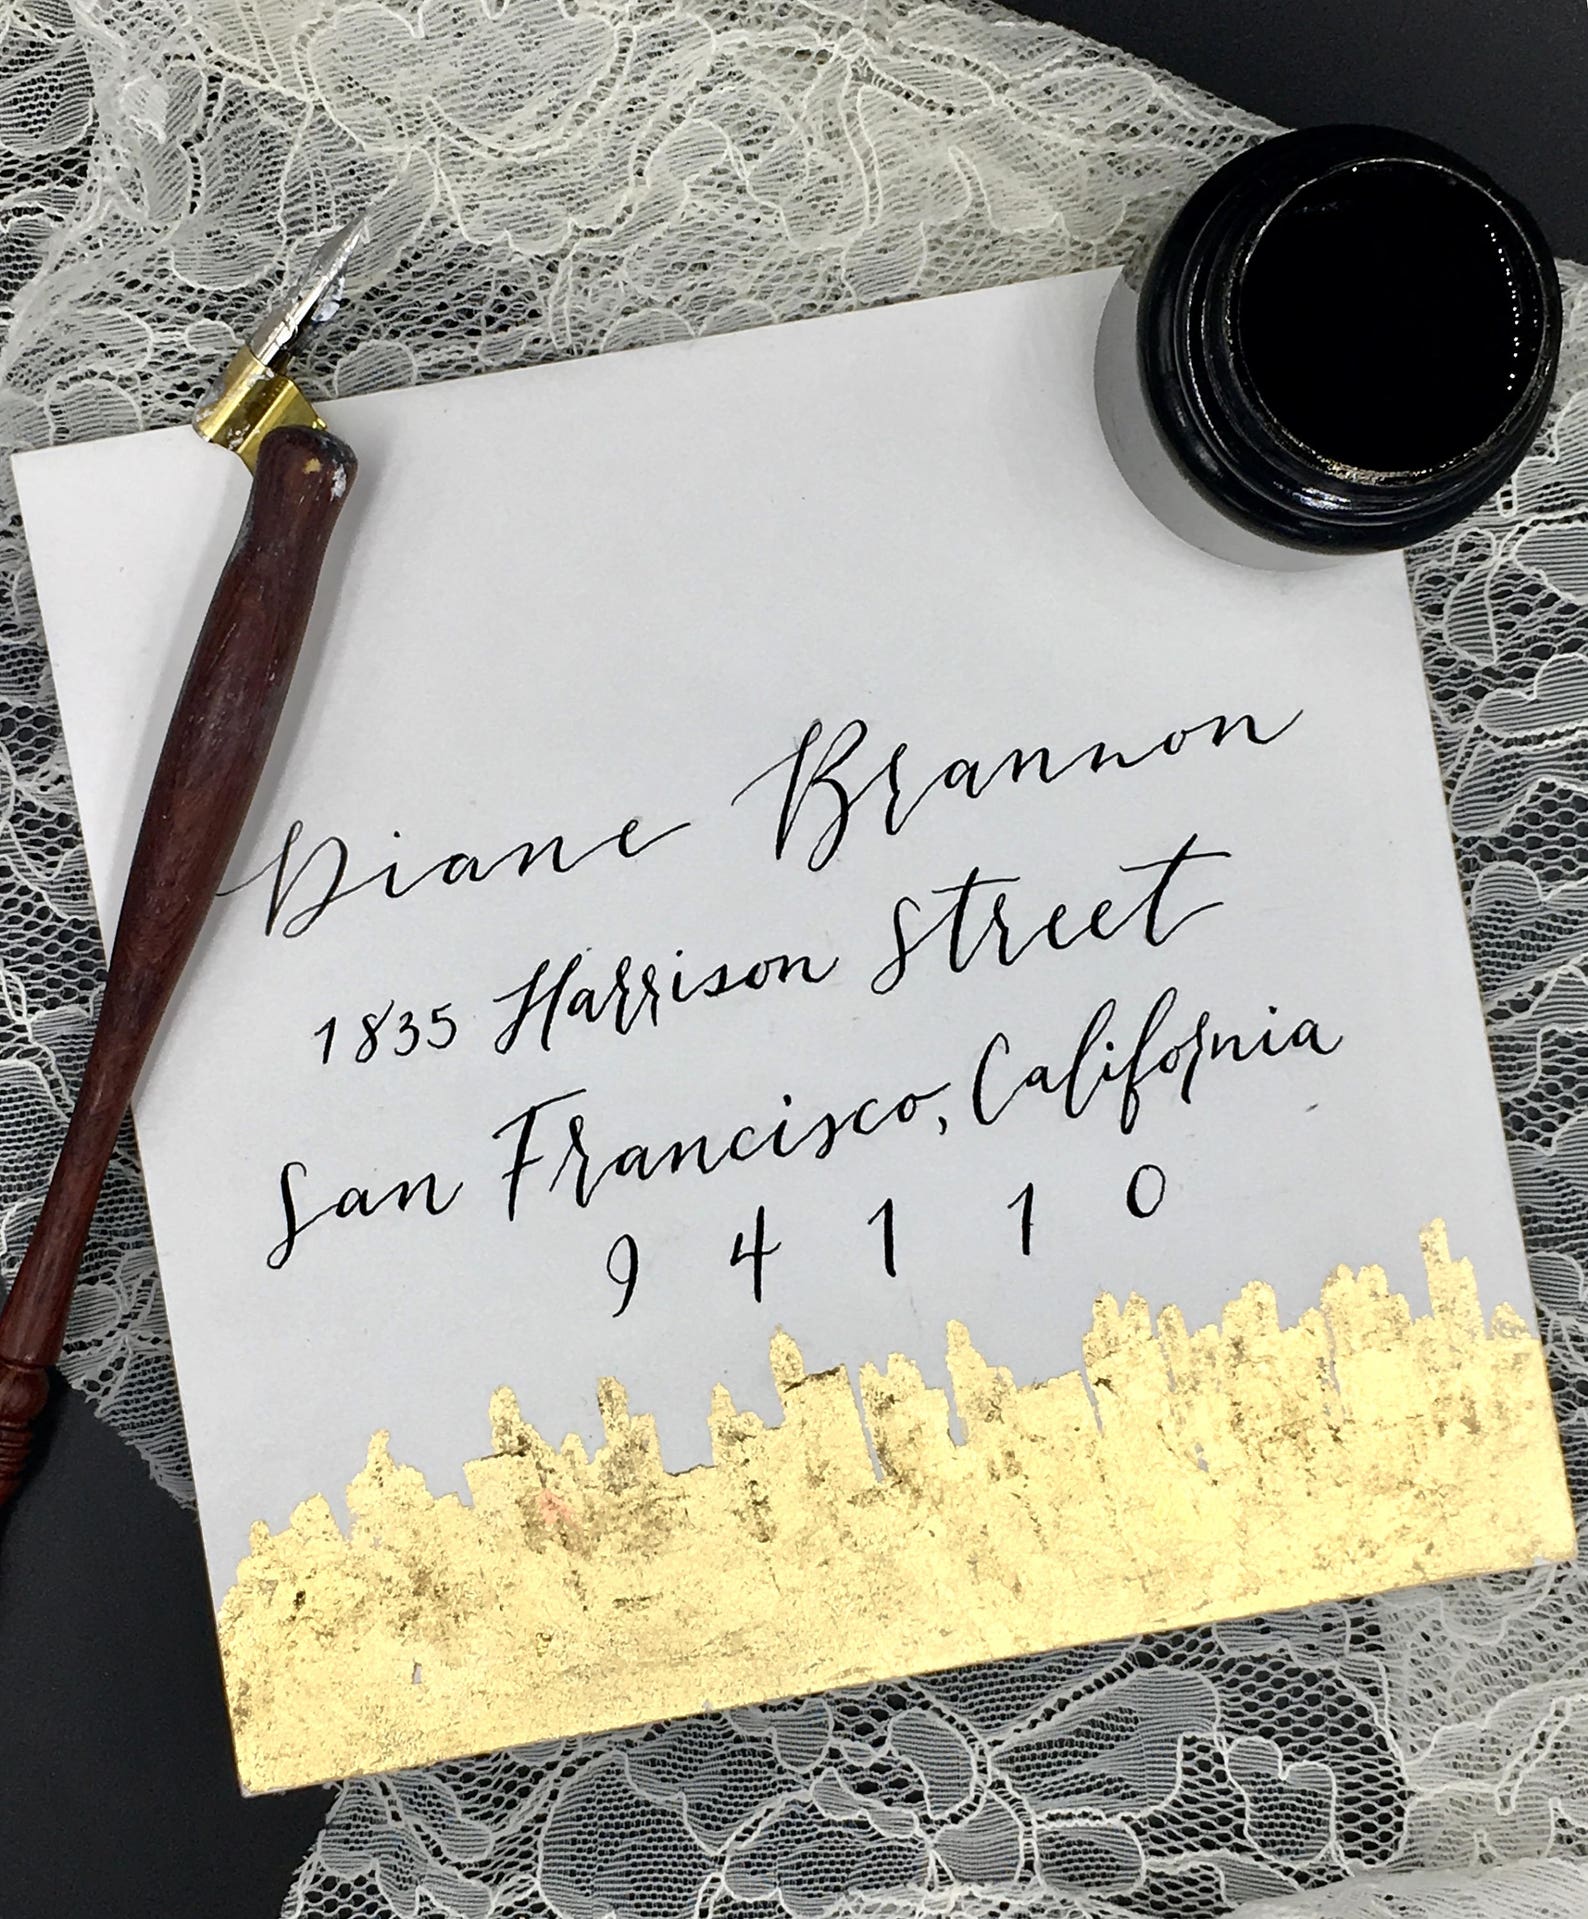 Diane Brannon
1835 Harrison Street
San Francisco, California
9 4 1 1 0